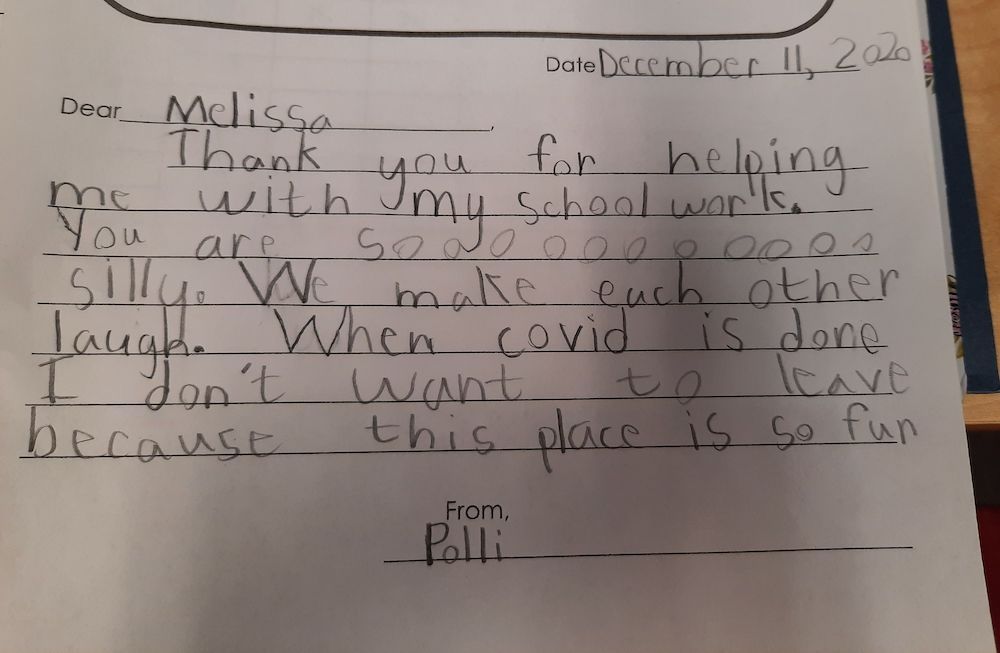 Date December 11, 2020
Dear Melissa,
Thank you for helping
me with my school work.
You are soooooooooooo
silly. We make each other
laugh. When covid is done
I don't want to leave
because this place is so fun
From,
Polli